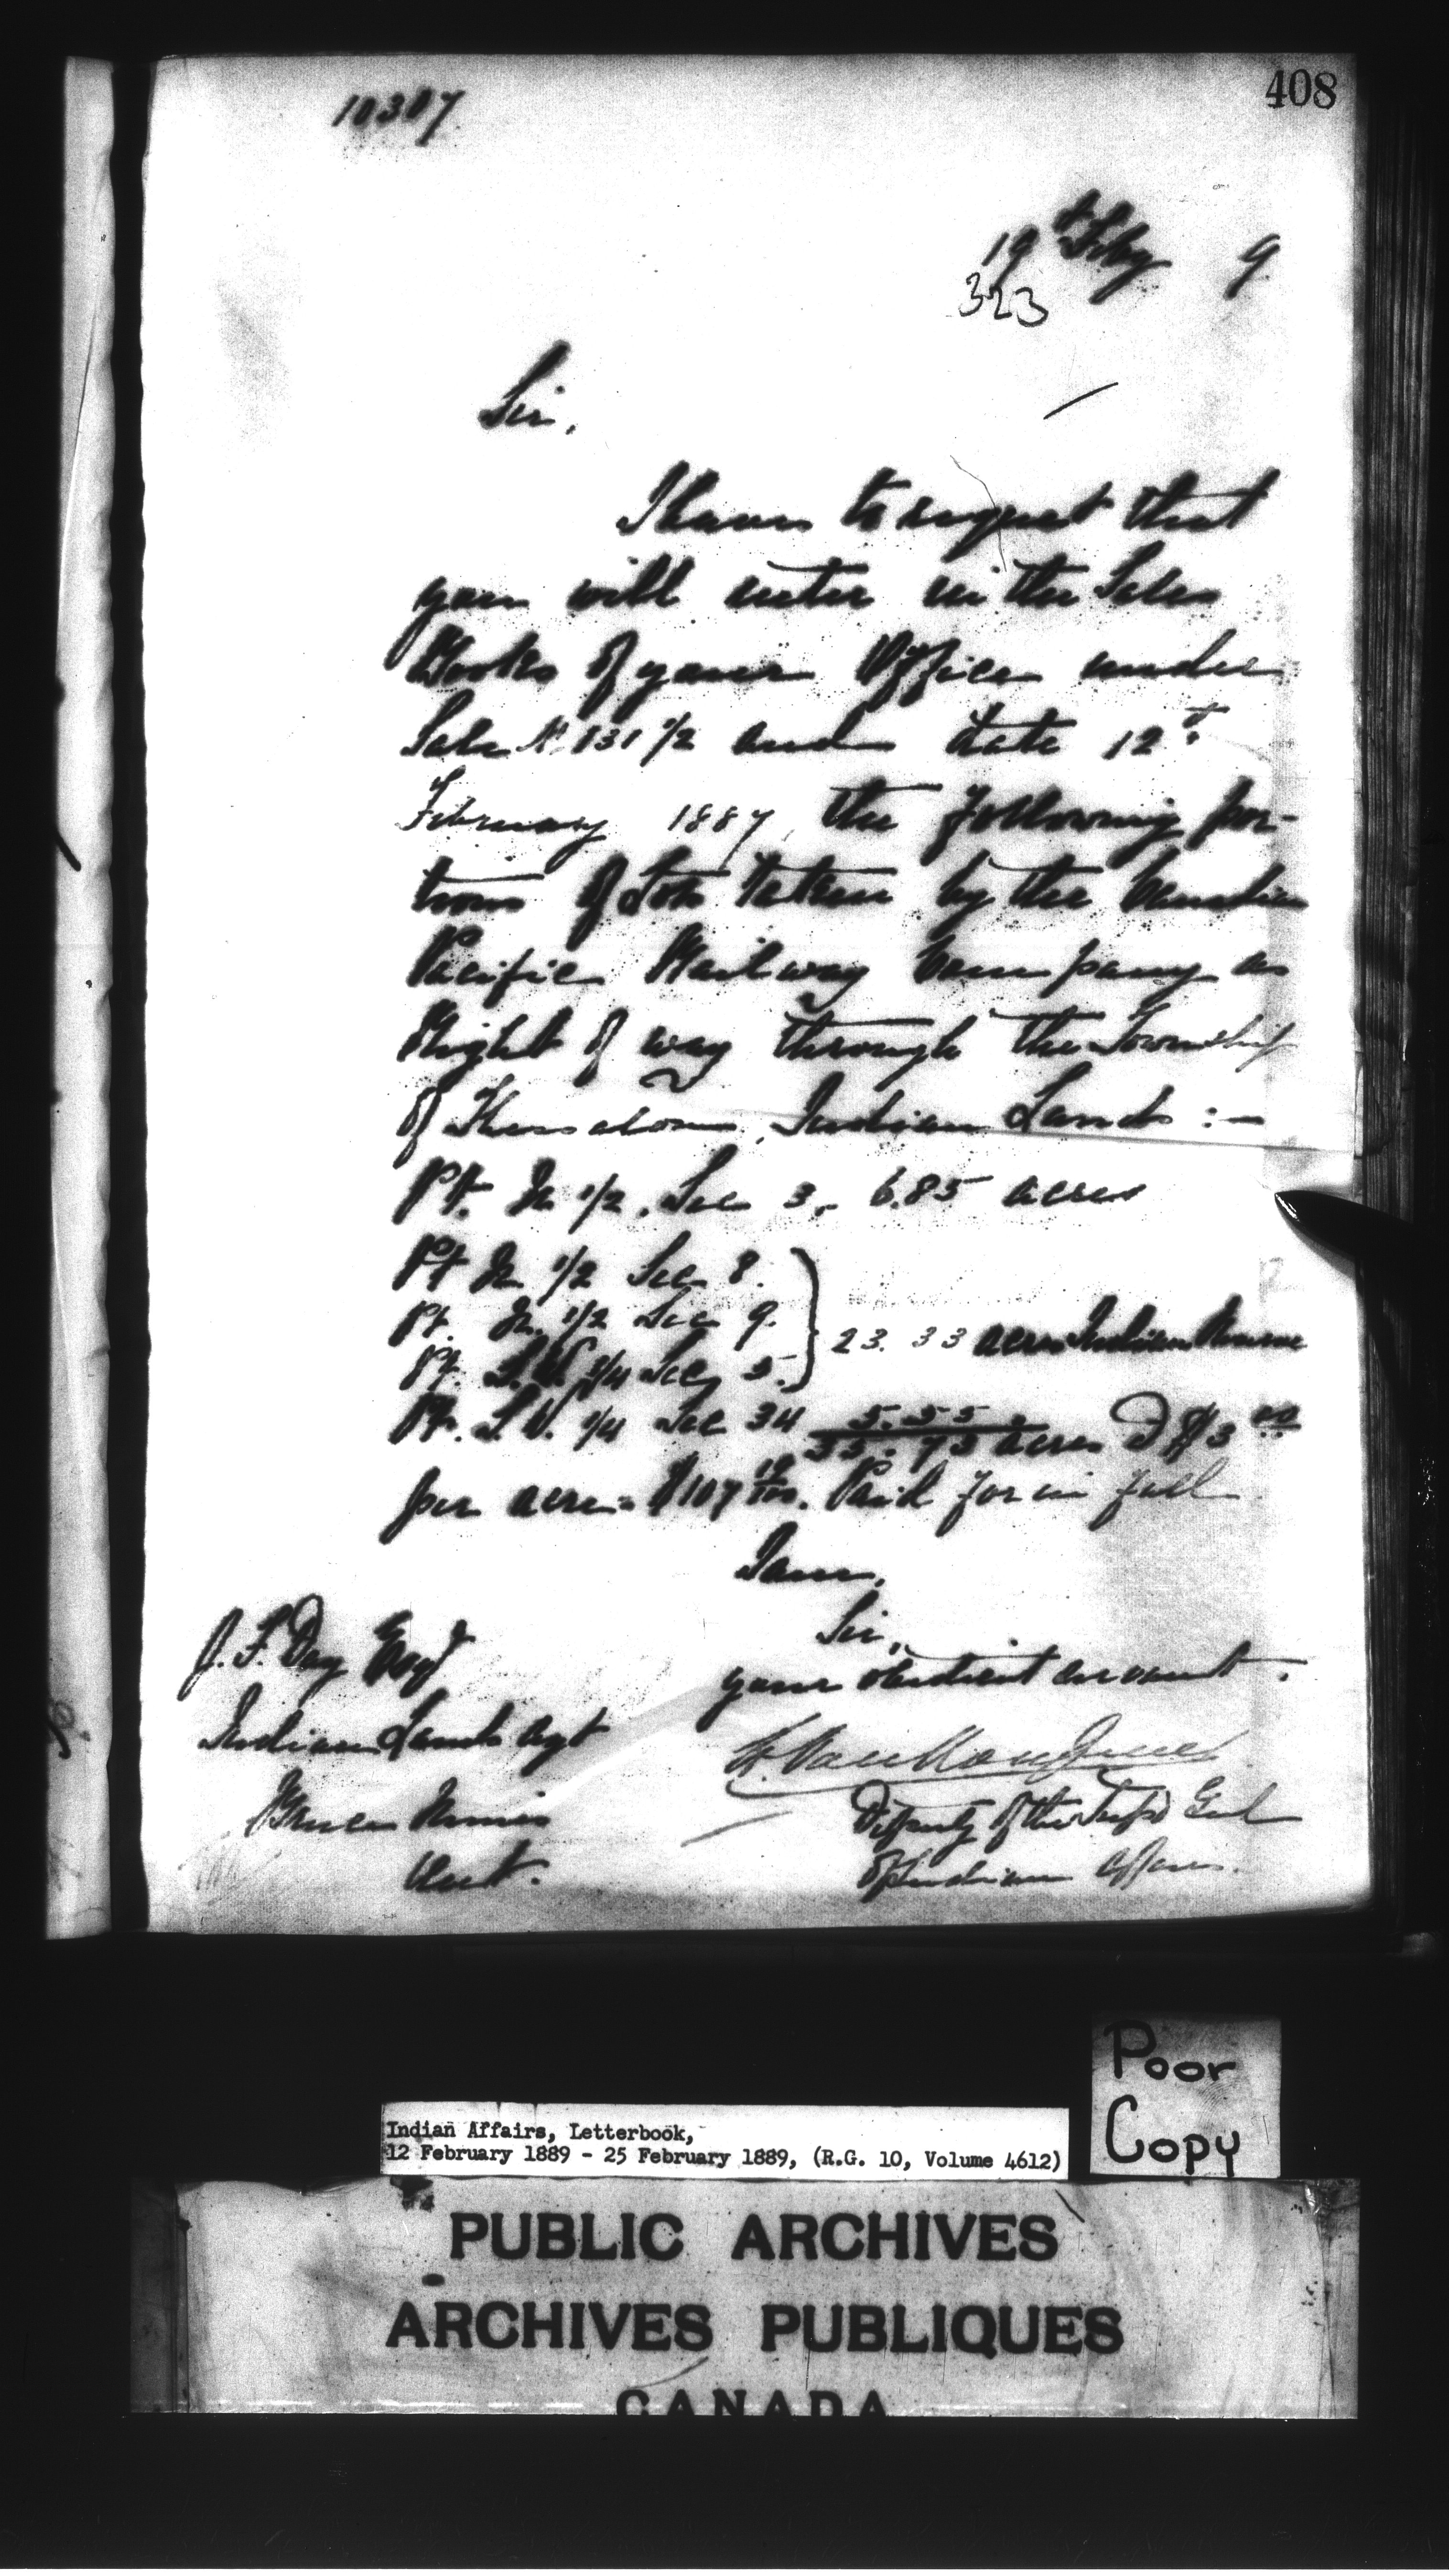 408
10307
19th Feby 9
323
Sir,
I have to request that
you will enter in the Sales
Books of your Office under
Sale No. 131 1/2 and date 12th
February 1887, the following por-
tions of Lots taken by the Canadian
Pacific Railway Company as
Right of way through the Township
of Thessalon, Indian Lands :—
Pt. N 1/2, Sec 3, 6.85 acres
Pt N 1/2 Sec 8.
Pt. N. 1/2 Sec 9. } 23.33 acres Indian Reserve
Pt. S.W. 1/4 Sec 5.
Pt. S.W. 1/4 Sec 34 5.55
35.73 acres @ $3.00
per acre = $107 19/100. Paid for in full
I am,
Sir,
your obedient servant.
L. Vankoughnet
Deputy of the Supt Genl
of Indian Affairs.
J. F. Day Esqr
Indian Lands Agt
Bruce Mines
Ont.
Poor
Copy
Indian Affairs, Letterbook,
12 February 1889 - 25 February 1889, (R.G. 10, Volume 4612)
PUBLIC ARCHIVES
ARCHIVES PUBLIQUES
CANADA